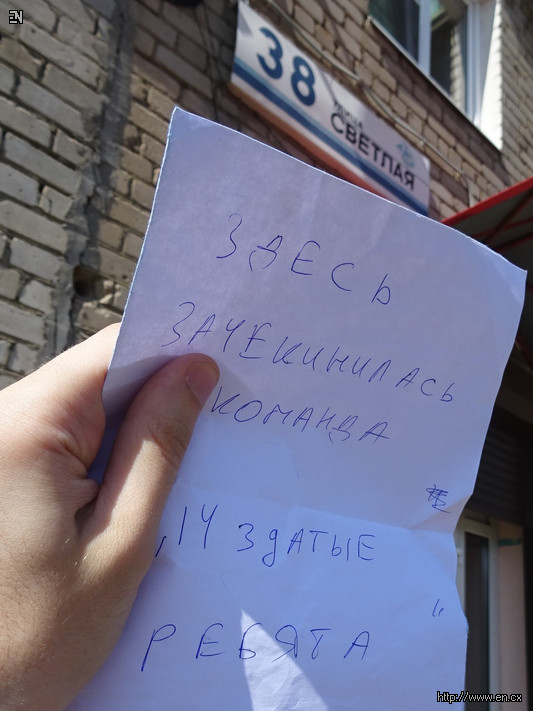 EN
38
улица
СВЕТЛАЯ
ЗДЕСЬ
ЗАЧЕКИНИЛАСЬ
КОМАНДА
,14 здАТЫЕ
РЕБЯТА "
http://www.en.cx